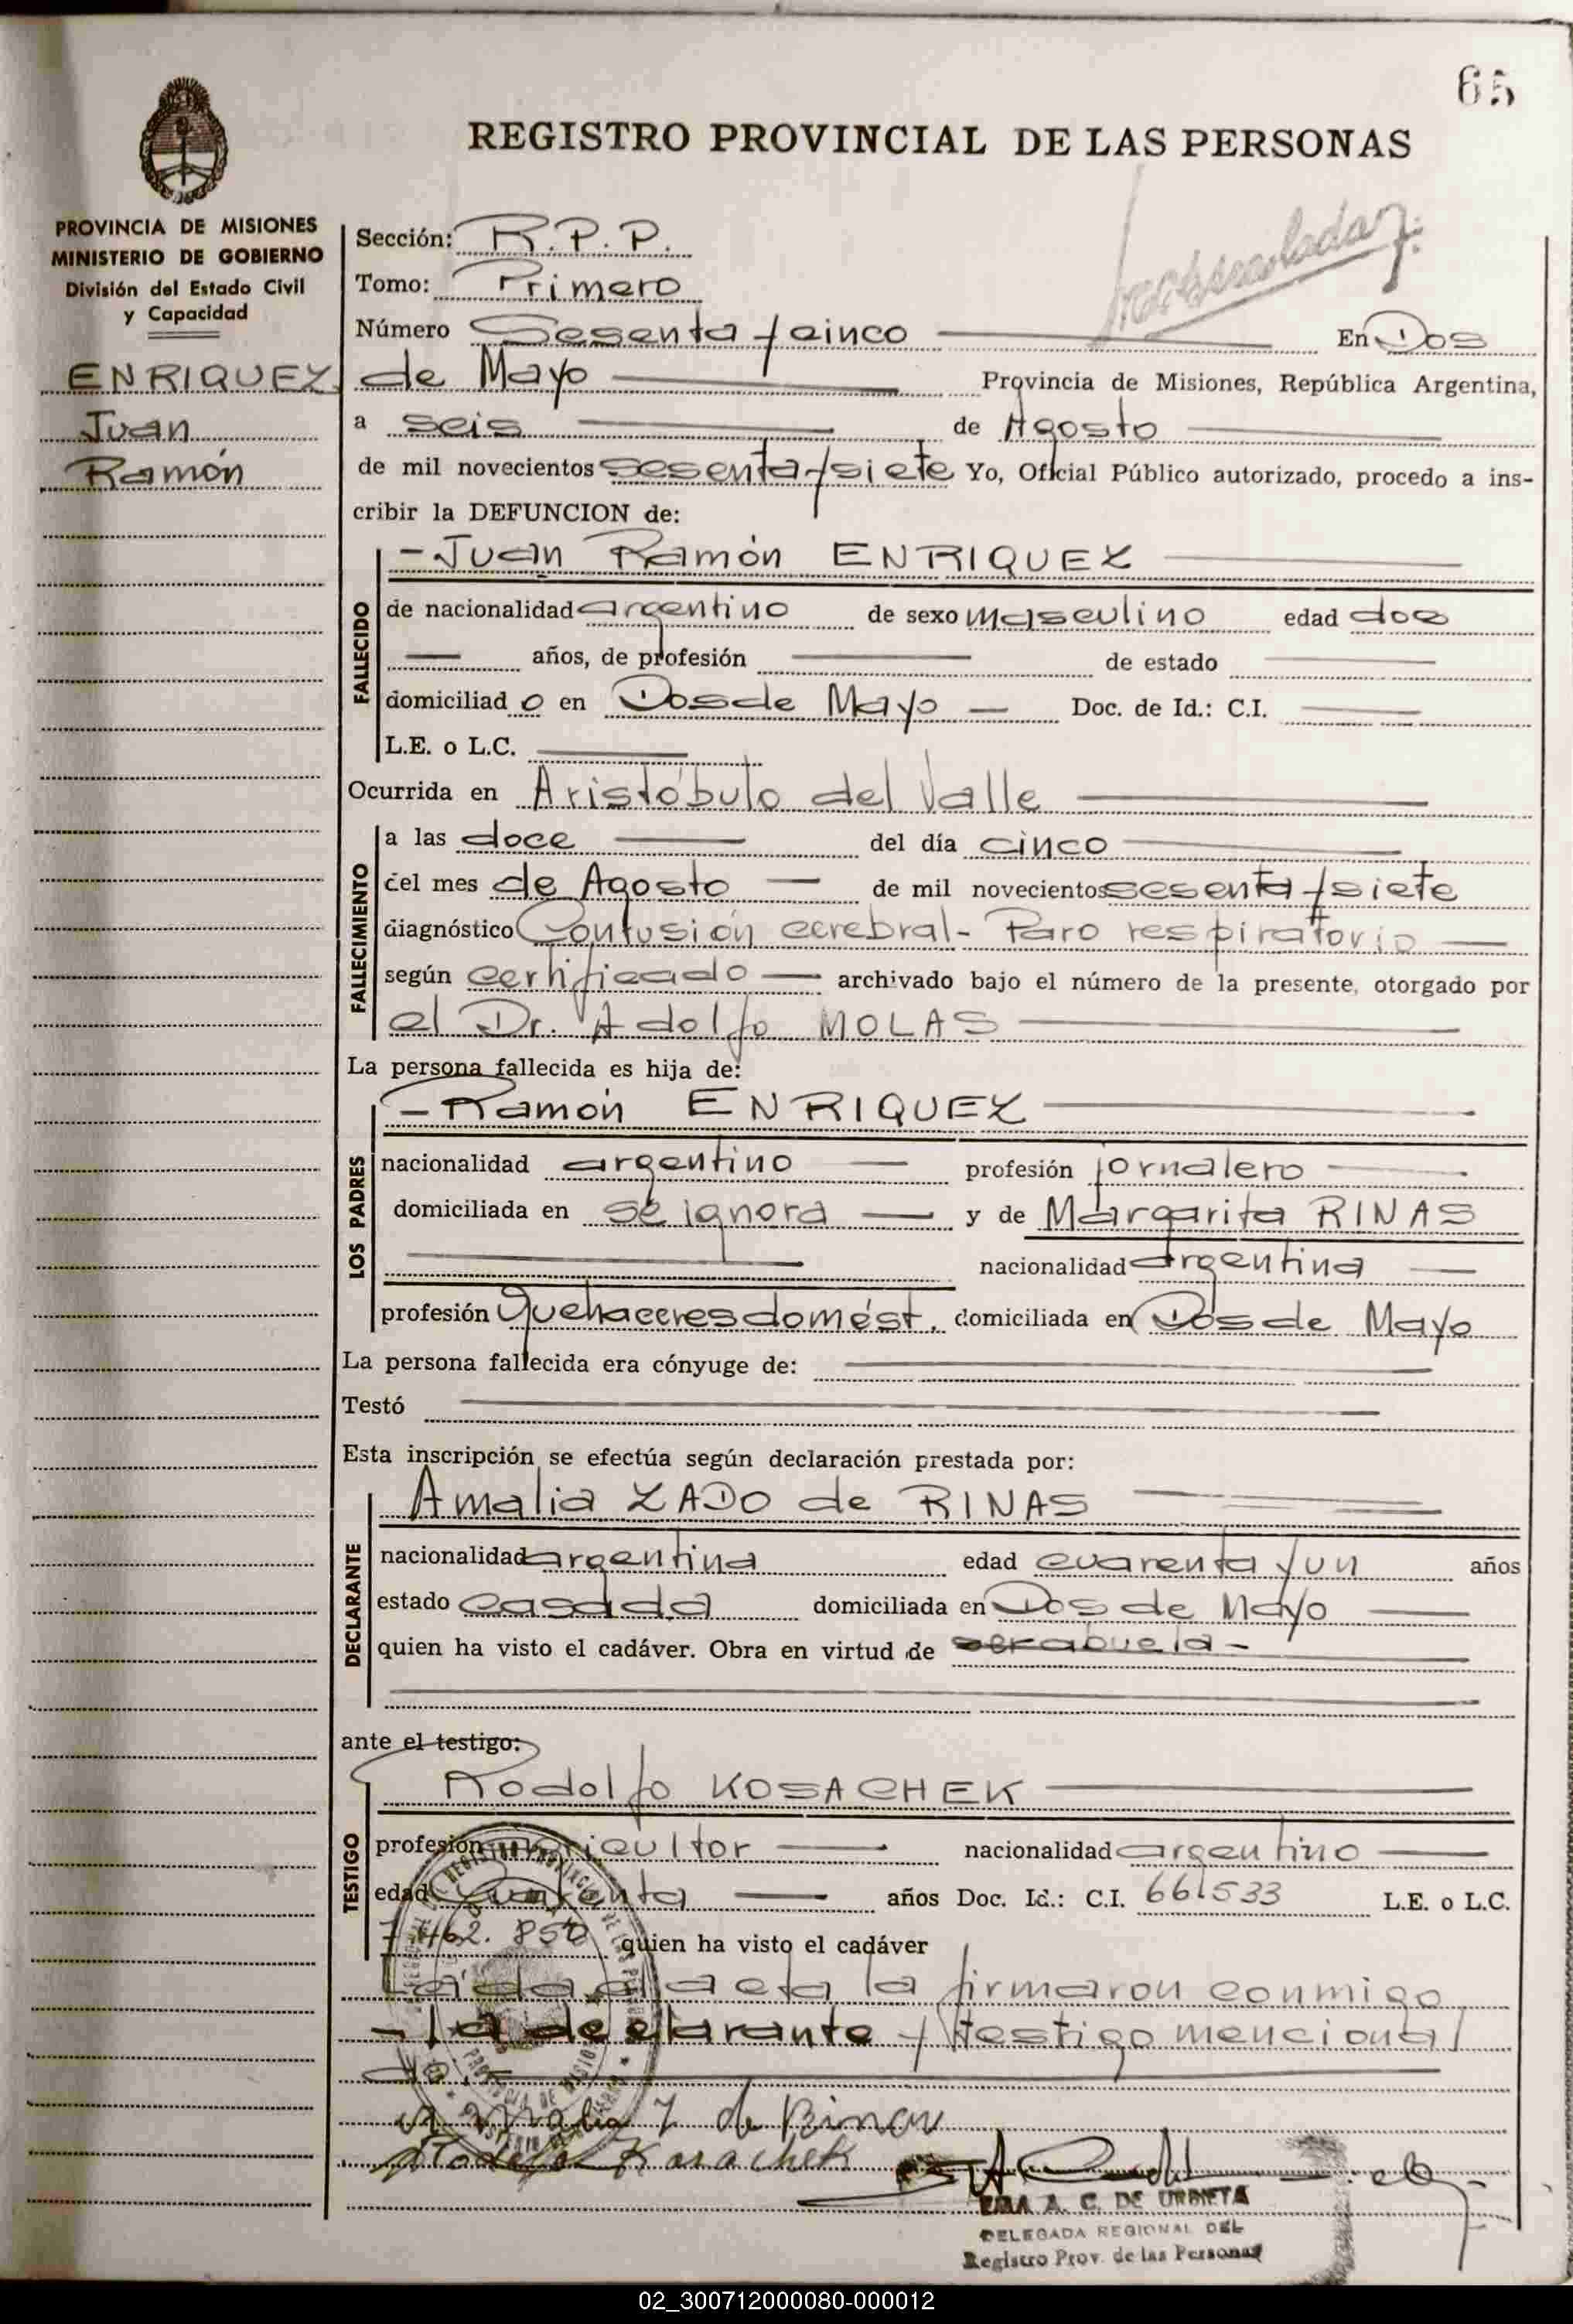 65
REGISTRO PROVINCIAL DE LAS PERSONAS
PROVINCIA DE MISIONES
MINISTERIO DE GOBIERNO
División del Estado Civil
y Capacidad
ENRIQUEZ
Juan
Ramón
Sección: R.P.P.
Tomo: Primero
Número Sesenta y cinco En Dos
de Mayo Provincia de Misiones, República Argentina,
a seis de Agosto
de mil novecientos sesenta y siete Yo, Oficial Público autorizado, procedo a ins-
cribir la DEFUNCION de:
FALLECIDO
- Juan Ramón ENRIQUEZ
de nacionalidad argentino de sexo masculino edad dos
años, de profesión de estado
domiciliad o en Dos de Mayo Doc. de Id.: C.I.
L.E. o L.C.
Ocurrida en Aristóbulo del Valle
FALLECIMIENTO
a las doce del día cinco
del mes de Agosto de mil novecientos sesenta y siete
diagnóstico Contusión cerebral - Paro respiratorio
según certificado archivado bajo el número de la presente, otorgado por
el Dr. Adolfo MOLAS
La persona fallecida es hija de:
LOS PADRES
- Ramón ENRIQUEZ
nacionalidad argentino profesión jornalero
domiciliada en se ignora y de Margarita RINAS
nacionalidad argentina
profesión Quehaceres domést. domiciliada en Dos de Mayo
La persona fallecida era cónyuge de:
Testó
Esta inscripción se efectúa según declaración prestada por:
DECLARANTE
Amalia ZADO de RINAS
nacionalidad argentina edad cuarenta y un años
estado casada domiciliada en Dos de Mayo
quien ha visto el cadáver. Obra en virtud de ser abuela -
ante el testigo:
TESTIGO
Rodolfo KOSACHEK
profesión agricultor nacionalidad argentino
edad cuarenta años Doc. Id.: C.I. 661533 L.E. o L.C.
7.462.850 quien ha visto el cadáver
Leída el acta la firmaron conmigo
- la declarante y testigo mencional
do.
Amalia Z de Rinas
Rodolfo Kosachek
A. C. DE URBIETA
DELEGADA REGIONAL DEL
Registro Prov. de las Personas
02_300712000080-000012